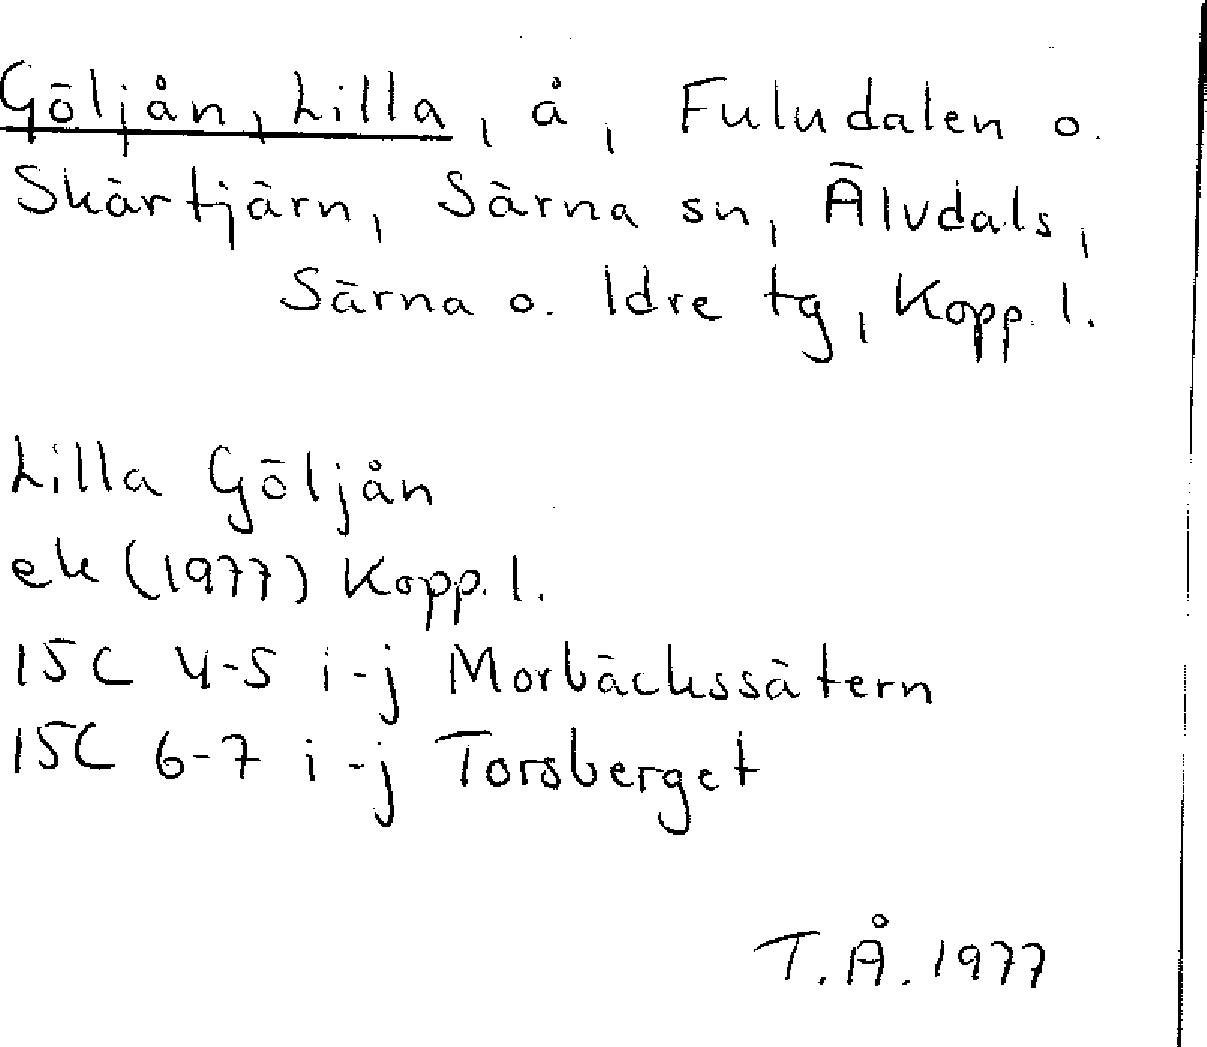 Göljån, Lilla, å, Fuludalen o.
Skärtjärn, Särna sn, Älvdals,
Särna o. Idre tg, Kopp. l.
Lilla Göljån
ek (1977) Kopp. l.
15C 4-5 i-j Morbäckssätern
15C 6-7 i-j Torsberget
T.Å. 1977